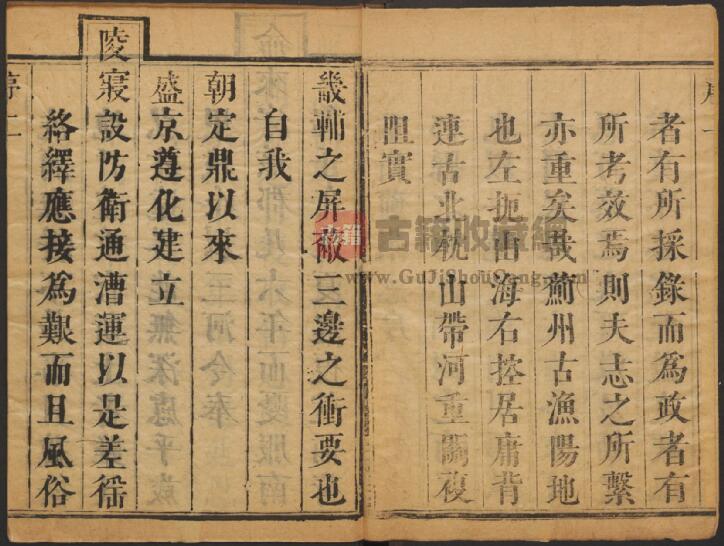 者有所採錄而為政者有
所考效焉則夫志之所繫
亦重矣哉薊州古漁陽地
也左扼山海右控居庸背
連古北枕山帶河重關複
阻實
畿輔之屏嶶三邊之衝要也
自我
朝定鼎以來
盛京遵化建立
陵寢設防衛通漕運以是差徭
絡繹應接為艱而且風俗
序二
古籍收藏網
www.GuJiShouCang.com